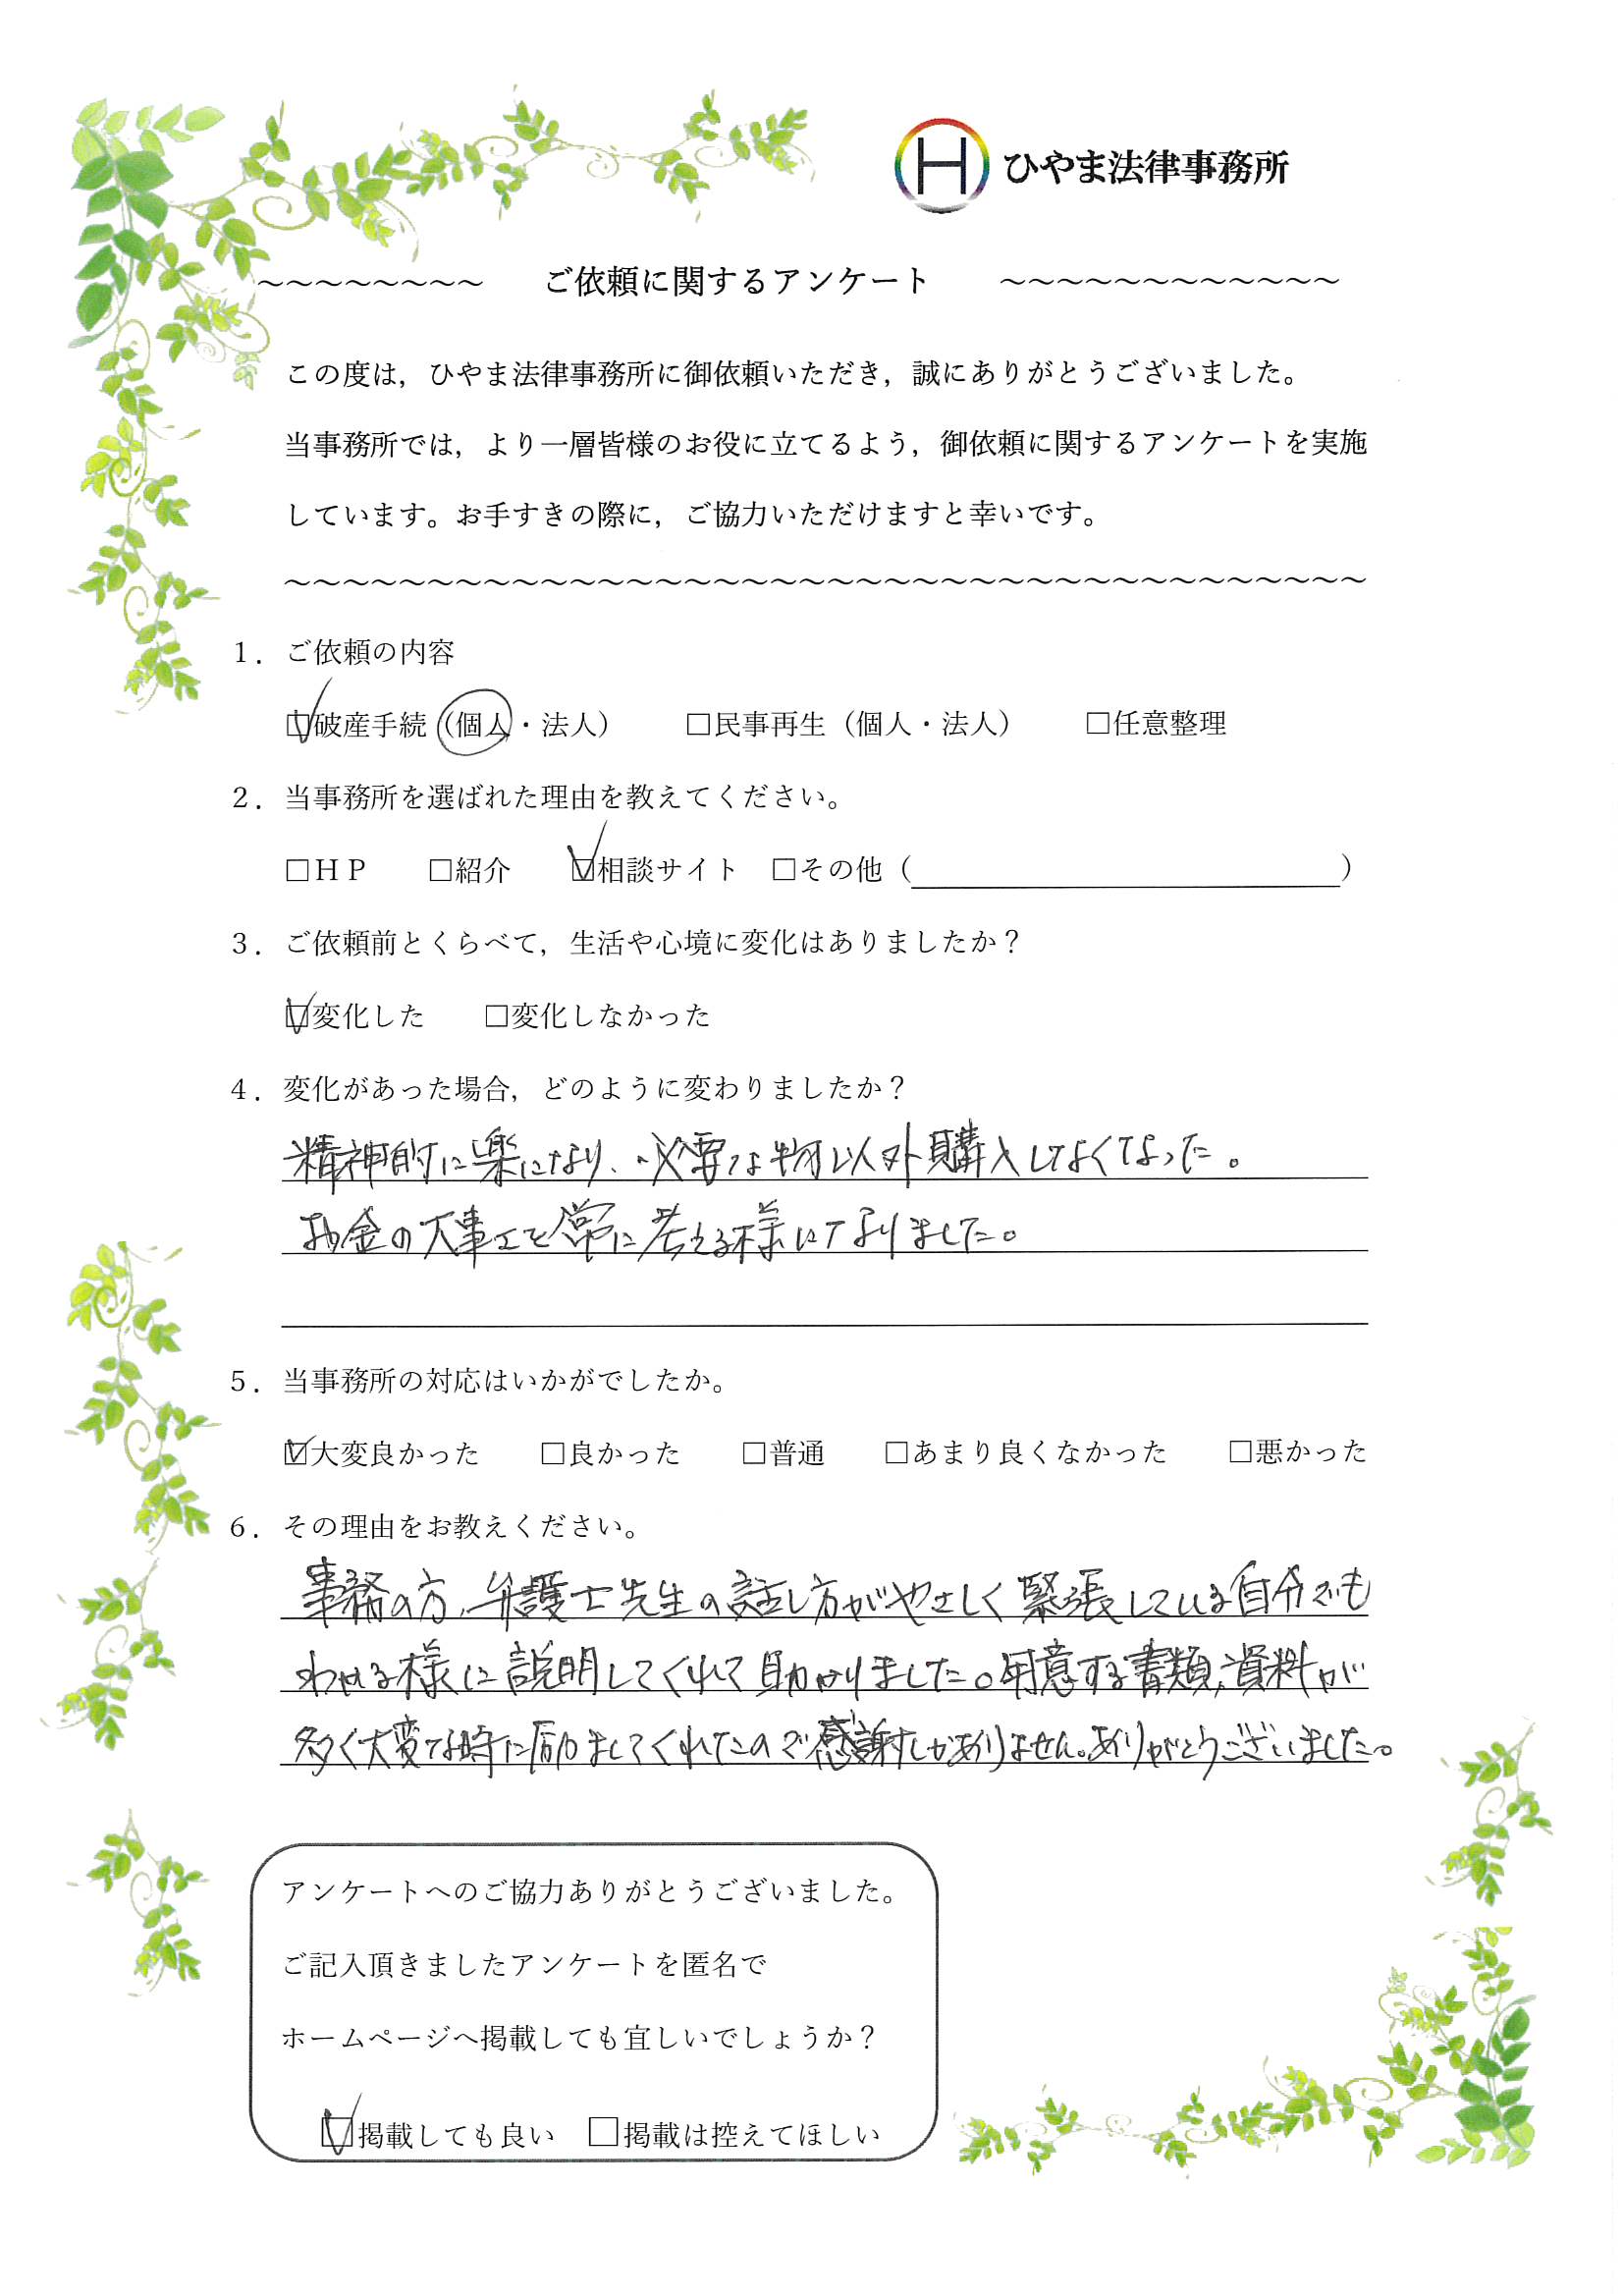 H ひやま法律事務所
～～～～～～～～ ご依頼に関するアンケート ～～～～～～～～～～～～
この度は，ひやま法律事務所に御依頼いただき，誠にありがとうございました。
当事務所では，より一層皆様のお役に立てるよう，御依頼に関するアンケートを実施
しています。お手すきの際に，ご協力いただけますと幸いです。
～～～～～～～～～～～～～～～～～～～～～～～～～～～～～～～～～～～～～～
１．ご依頼の内容
☑破産手続（個人・法人） □民事再生（個人・法人） □任意整理
２．当事務所を選ばれた理由を教えてください。
□ＨＰ □紹介 ☑相談サイト □その他（ ）
３．ご依頼前とくらべて，生活や心境に変化はありましたか？
☑変化した □変化しなかった
４．変化があった場合，どのように変わりましたか？
精神的に楽になり、必要な物以外購入しなくなった。
お金の大事さを常に考える様になりました。
５．当事務所の対応はいかがでしたか。
☑大変良かった □良かった □普通 □あまり良くなかった □悪かった
６．その理由をお教えください。
事務の方、弁護士先生の話し方がやさしく緊張している自分でも
わかる様に説明してくれて助かりました。用意する書類、資料が
多く大変な時に励ましてくれたので感謝しかありません。ありがとうございました。
アンケートへのご協力ありがとうございました。
ご記入頂きましたアンケートを匿名で
ホームページへ掲載しても宜しいでしょうか？
☑掲載しても良い □掲載は控えてほしい